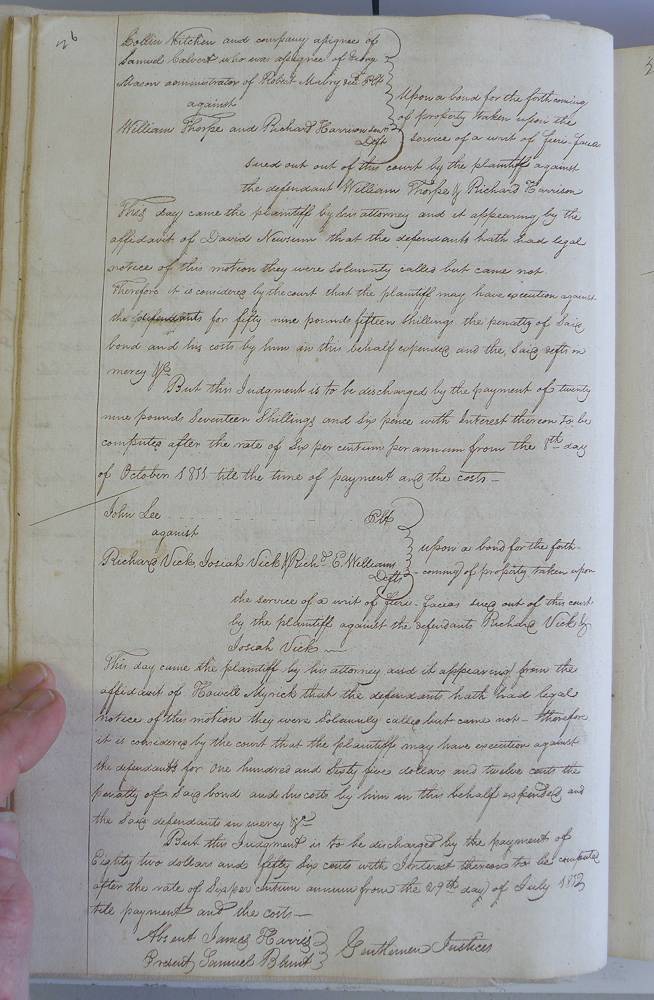 26
Collin Kitchen and company assignee of
Samuel Calvert who was assignee of George
Mason administrator of Robert Mabry decd. Plt
against
William Thorpe and Richard Harrison
Defts
Upon a bond for the forthcoming
of property taken upon the
service of a writ of fieri-facias
sued out out of this court by the plaintiff against
the defendant William Thorpe & Richard Harrison
This day came the plaintiff by his attorney and it appearing by the
affidavit of David Newsum that the defendants hath had legal
notice of this motion they were Solemnly called but came not.
Therefore it is considered by the court that the plaintiff may have execution against
the defendants for fifty nine pounds fifteen Shillings the penalty of Said
bond and his costs by him in this behalf expended and the Said defts in
mercy &c
But this Judgment is to be discharged by the payment of twenty
nine pounds Seventeen Shillings and Six pence with Interest thereon to be
computed after the rate of Six per centum per annum from the 8th day
of October 1811 till the time of payment and the costs -
John Lee Plt
against
Richard Vick Josiah Vick & Richd. E. Williams
Defts
upon a bond for the forth-
coming of property taken upon
the service of a writ of fieri-facias sued out of this court
by the plaintiff against the defendants Richard Vick &
Josiah Vick -
This day came the plaintiff by his attorney and it appearing from the
affidavit of Howell Myrick that the defendants hath had legal
notice of this motion they were Solemnly called but came not - therefore
it is considered by the court that the plaintiff may have execution against
the defendants for One hundred and Sixty five dollars and twelve cents the
penalty of Said bond and his costs by him in this behalf expended and
the Said defendants in mercy &c
But this Judgment is to be discharged by the payment of
Eighty two dollars and fifty Six cents with Interest thereon to be computed
after the rate of Six per centum annum from the 29th day of July 1812
till payment and the costs -
Absent James Harris
Present Samuel Blunt
Gentlemen Justices